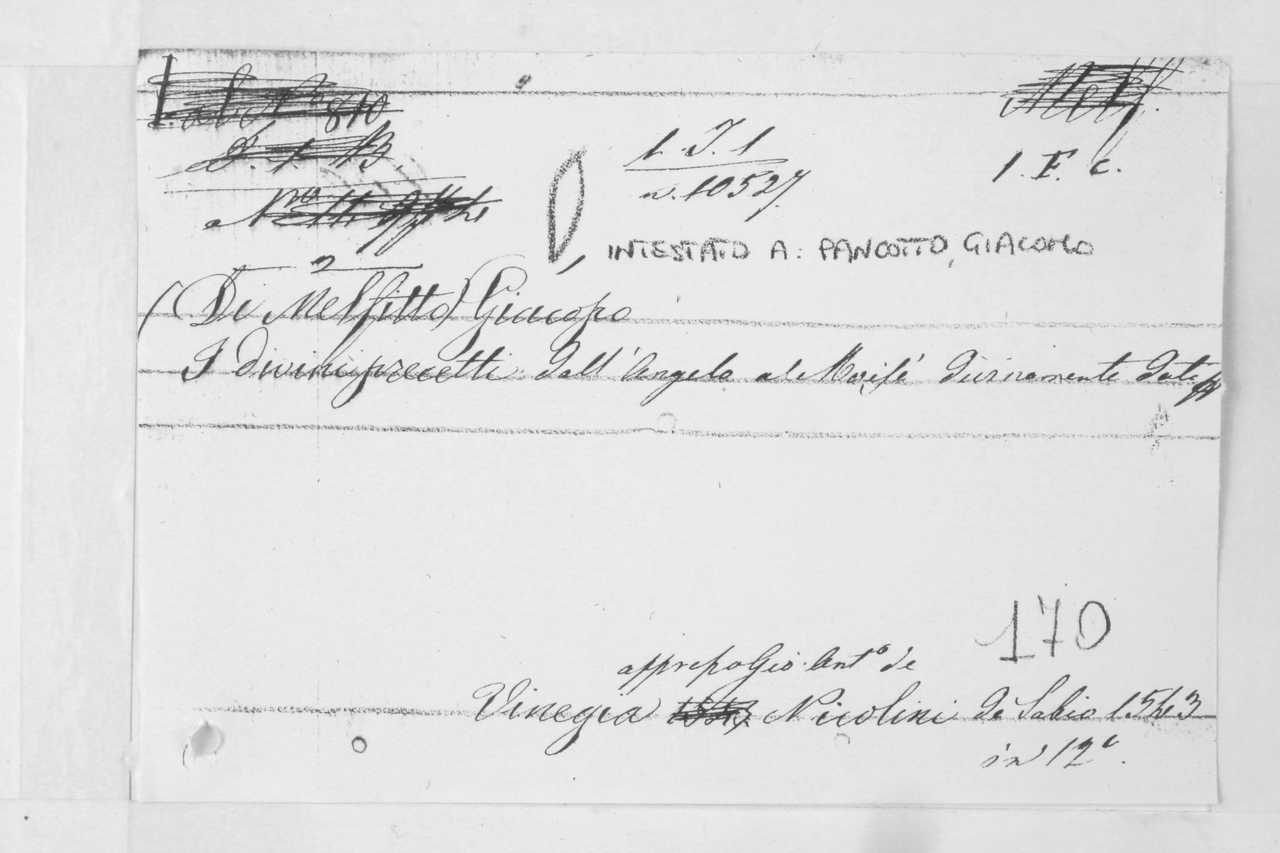 al N° 810
1. I. 1
n. 10527
1. F. c.
INTESTATO A: PANCOTTO, GIACOMO
(Di Melfitto) Giacopo
I divini precetti dall' Angelo a Moisè divinamente dati
170
appresso Gio. Ant° de
Vinegia Nicolini da Sabio 1543
in 12°.